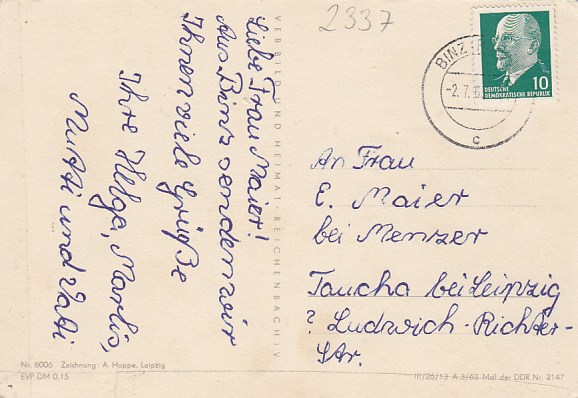 2337
Liebe Frau Maier!
Aus Binz senden wir
Ihnen viele Grüße
Ihre Helga, Marlis,
Mutti und Vati
VEB BILD UND HEIMAT · REICHENBACH i V
DEUTSCHE
DEMOKRATISCHE REPUBLIK
10
BINZ
-2.7.
c
An Frau
E. Maier
bei Menzer
Taucha bei Leipzig
? Ludwich-Richter-
Str.
Nr. 8006 Zeichnung: A. Hoppe, Leipzig
EVP DM 0,15
III/26/13 A 3/63 MdI der DDR Nr. 2147